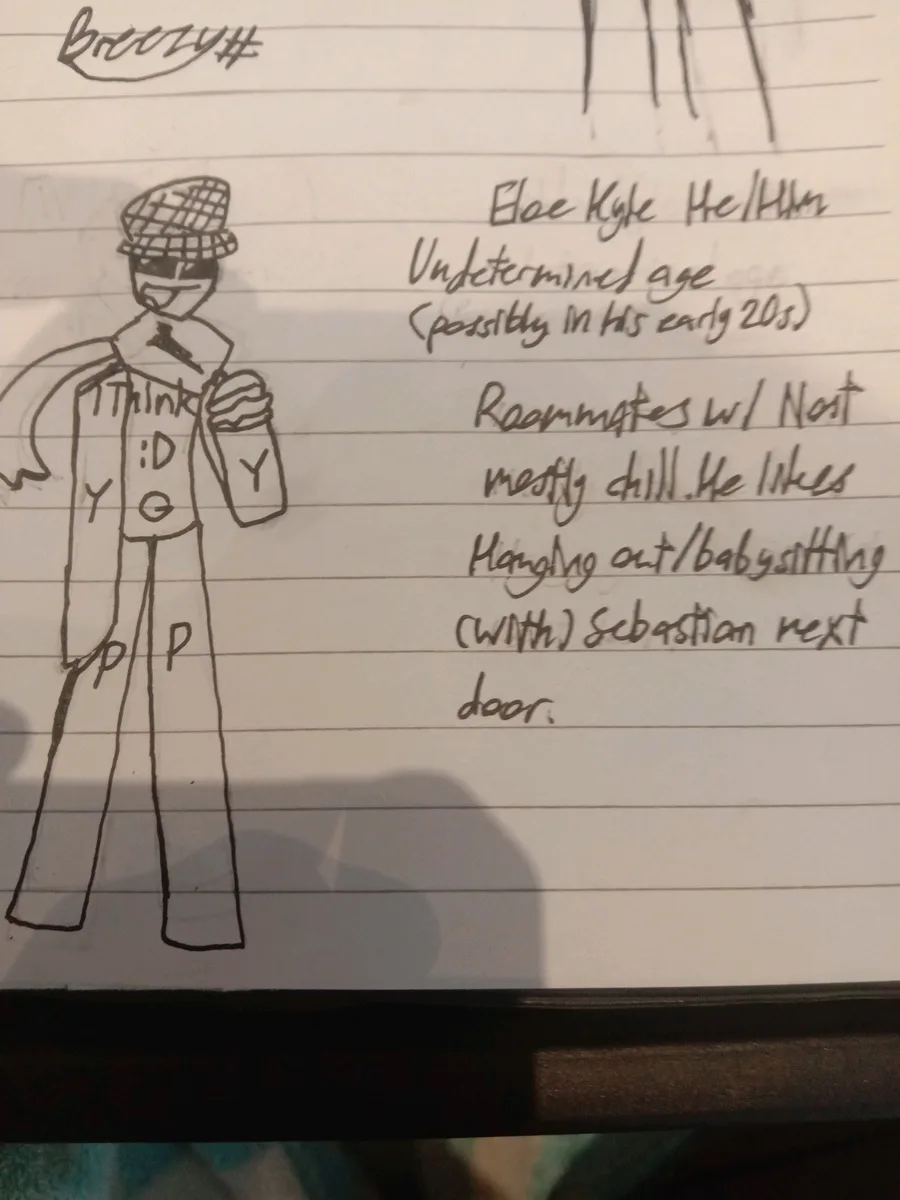 Breezy#
Eloe Kyle He/Him
Undetermined age
(possibly in his early 20s)
Roommates w/ Noit
mostly chill. He likes
Hanging out/babysitting
(with) Sebastian next
door.
I Think
:D
G
Y
Y
P
P